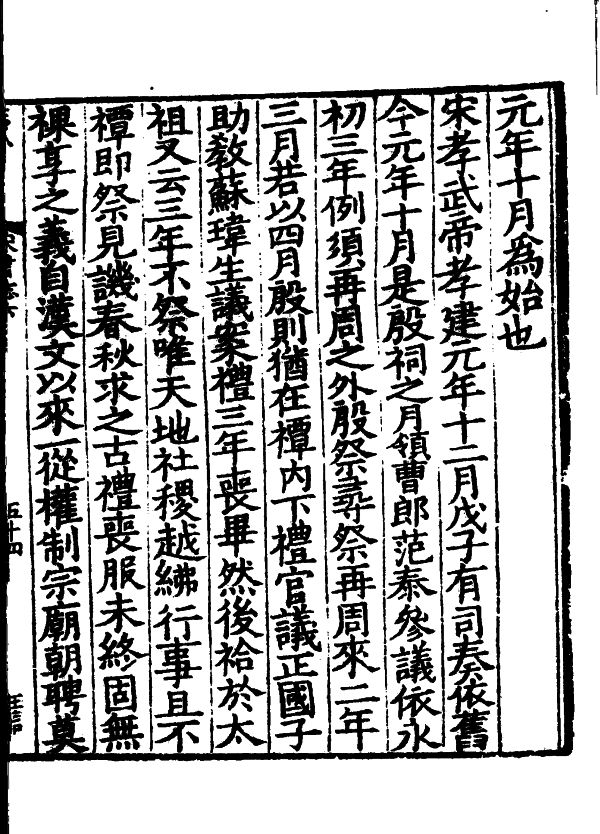 元年十月為始也
宋孝武帝孝建元年十二月戊子有司奏依舊
今元年十月是殷祠之月領曹郎范泰參議依永
初三年例須再周之外殷祭尋祭再周來二年
三月若以四月殷則猶在禫內下禮官議正國子
助教蘇瑋生議案禮三年喪畢然後祫於太
祖又云三年不祭唯天地社稷越紼行事且不
禫即祭見譏春秋求之古禮喪服未終固無
祼享之義自漢文以來一從權制宗廟朝聘莫
五十四